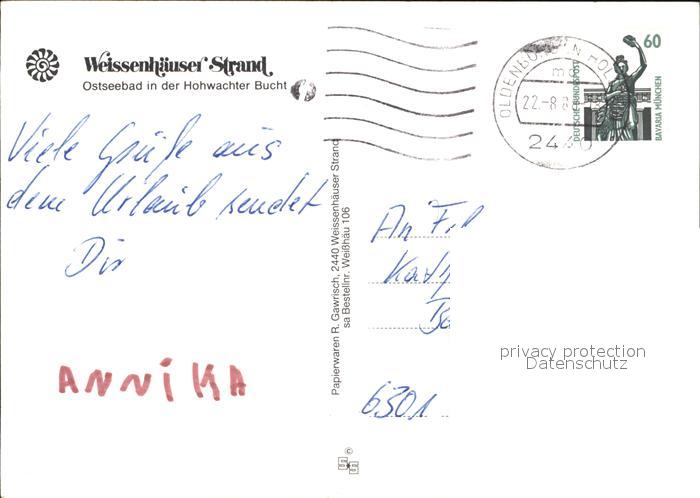 Weissenhäuser Strand
Ostseebad in der Hohwachter Bucht
Viele Grüße aus
dem Urlaub sendet
Dir
ANNiKA
Papierwaren R. Gawrisch, 2440 Weissenhäuser Strand
sa Bestellnr. Weißhäu 106
OLDENBURG IN HOL
22.-8.8
2440
60
DEUTSCHE BUNDESPOST
BAVARIA MÜNCHEN
An
6301
privacy protection
Datenschutz